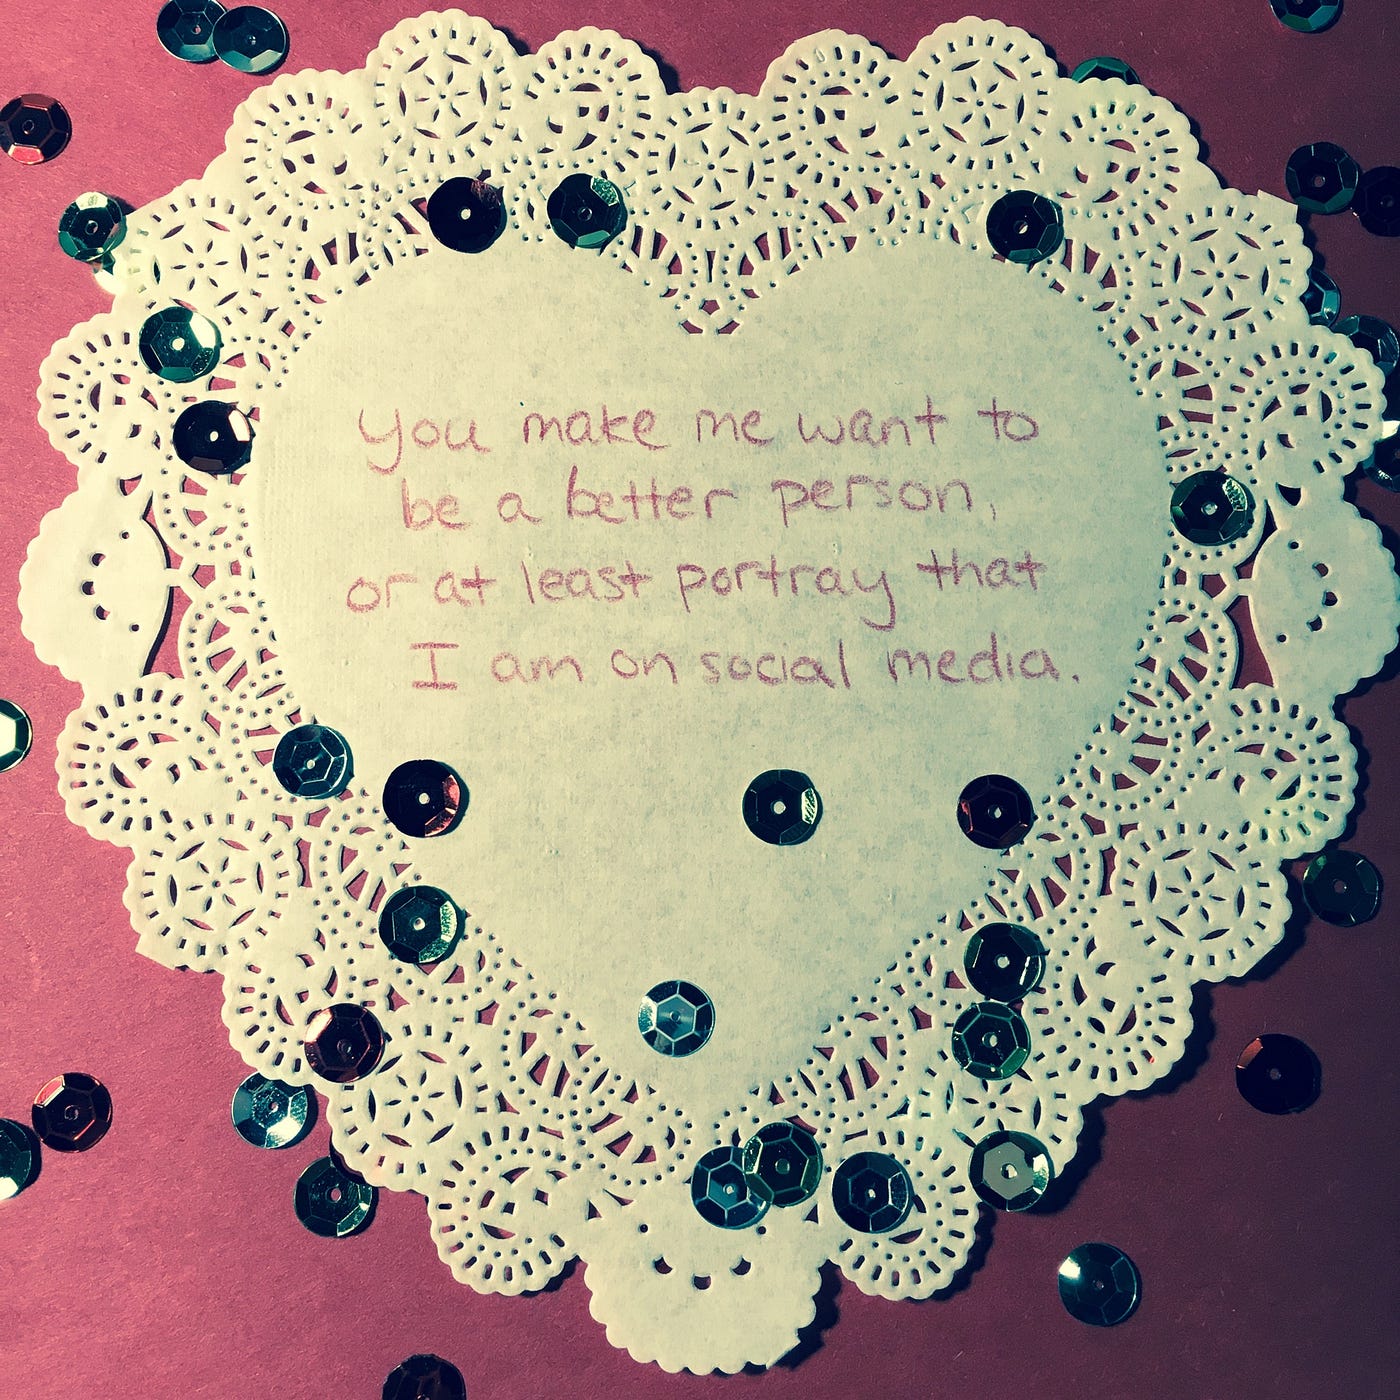 You make me want to
be a better person,
or at least portray that
I am on social media.